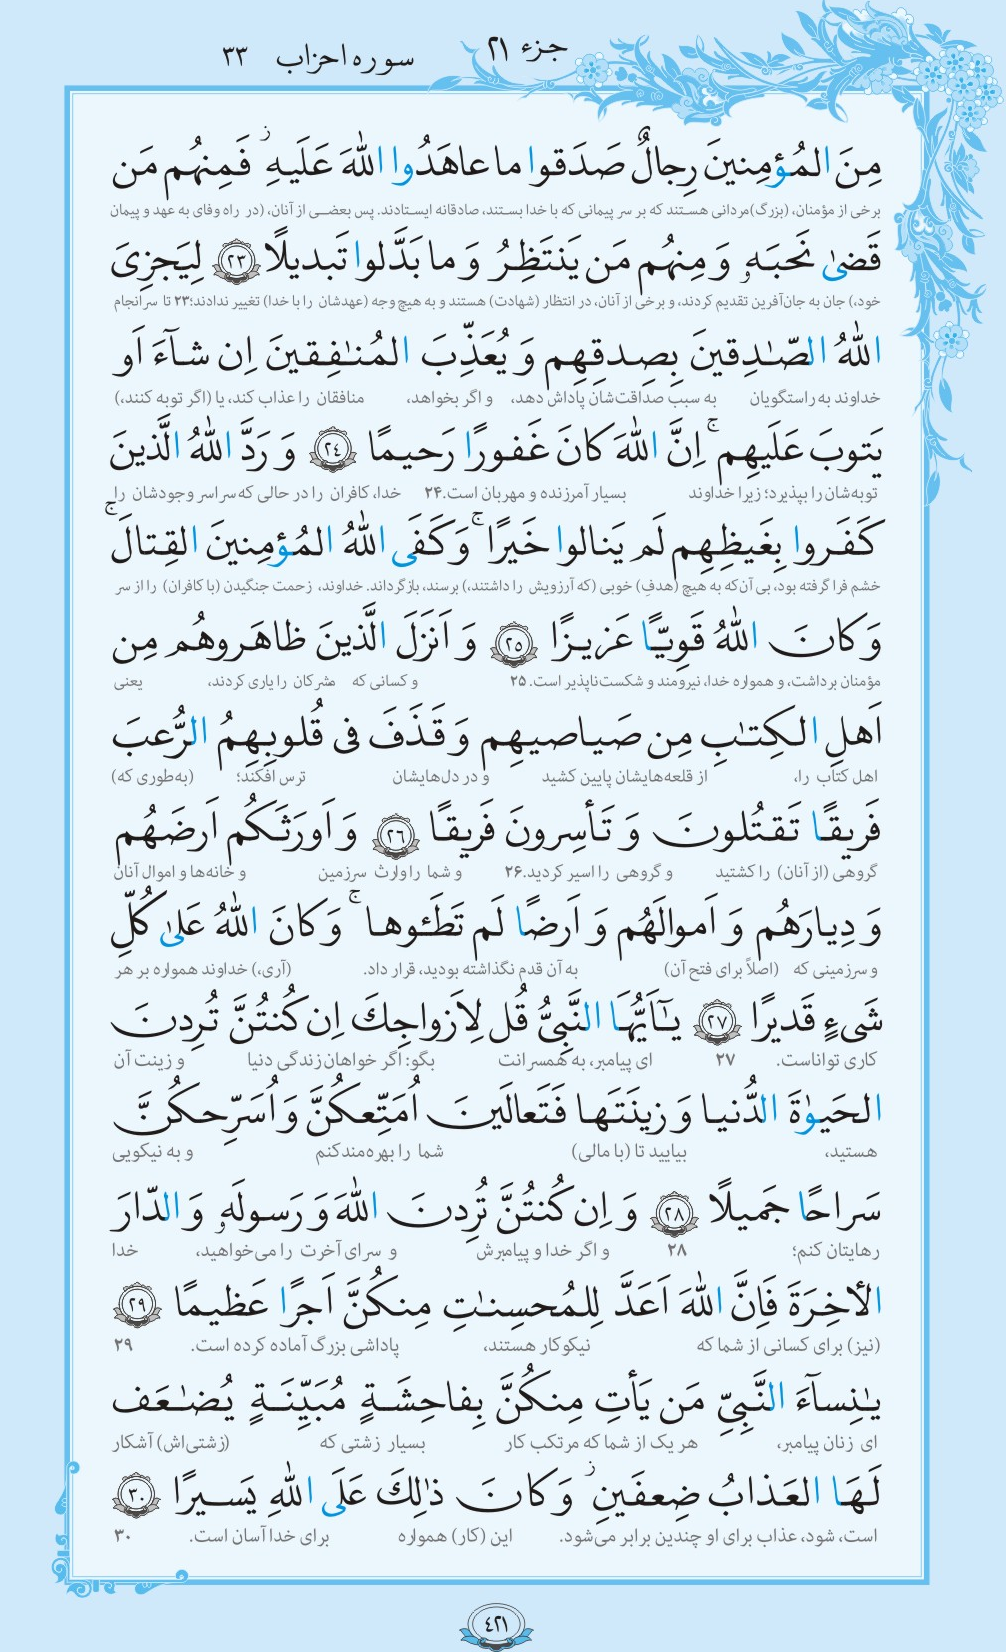 جزء ۲۱ سوره احزاب ۳۳
مِنَ المُؤمِنینَ رِجالٌ صَدَقوا ما عاهَدُوا اللهَ عَلَیهِ ۖ فَمِنهُم مَن
برخی از مؤمنان، (بزرگ)مردانی هستند که بر سر پیمانی که با خدا بستند، صادقانه ایستادند. پس بعضی از آنان، (در راه وفای به عهد و پیمان
قَضیٰ نَحبَهٗ وَ مِنهُم مَن یَنتَظِرُ وَ ما بَدَّلوا تَبدیلًا ﴿۲۳﴾ لِیَجزِیَ
خود،) جان به جان‌آفرین تقدیم کردند، و برخی از آنان، در انتظار (شهادت) هستند و به هیچ وجه (عهدشان را با خدا) تغییر ندادند؛۲۳ تا سرانجام
اللهُ الصّٰدِقینَ بِصِدقِهِم وَ یُعَذِّبَ المُنٰفِقینَ اِن شآءَ اَو
خداوند به راستگویان به سبب صداقت‌شان پاداش دهد، و اگر بخواهد، منافقان را عذاب کند، یا (اگر توبه کنند،)
یَتوبَ عَلَیهِم ۚ اِنَّ اللهَ کانَ غَفورًا رَحیمًا ﴿۲۴﴾ وَ رَدَّ اللهُ الَّذینَ
توبه‌شان را بپذیرد؛ زیرا خداوند بسیار آمرزنده و مهربان است.۲۴ خدا، کافران را در حالی که سراسر وجودشان را
کَفَروا بِغَیظِهِم لَم یَنالوا خَیرًا ۚ وَ کَفَی اللهُ المُؤمِنینَ القِتالَ ۚ
خشم فرا گرفته بود، بی آن‌که به هیچ (هدفِ) خوبی (که آرزویش را داشتند،) برسند، بازگرداند. خداوند، زحمت جنگیدن (با کافران) را از سر
وَ کانَ اللهُ قَوِیًّا عَزیزًا ﴿۲۵﴾ وَ اَنزَلَ الَّذینَ ظاهَروهُم مِن
مؤمنان برداشت، و همواره خدا، نیرومند و شکست‌ناپذیر است. ۲۵ و کسانی که مشرکان را یاری کردند، یعنی
اَهلِ الکِتٰبِ مِن صَیاصیهِم وَ قَذَفَ فی قُلوبِهِمُ الرُّعبَ
اهل کتاب را، از قلعه‌هایشان پایین کشید و در دل‌هایشان ترس افکند؛ (به‌طوری که)
فَریقًا تَقتُلونَ وَ تَأسِرونَ فَریقًا ﴿۲۶﴾ وَ اَورَثَکُم اَرضَهُم
گروهی (از آنان) را کشتید و گروهی را اسیر کردید.۲۶ و شما را وارث سرزمین و خانه‌ها و اموال آنان
وَ دِیارَهُم وَ اَموالَهُم وَ اَرضًا لَم تَطَئوها ۚ وَ کانَ اللهُ عَلیٰ کُلِّ
و سرزمینی که (اصلاً برای فتح آن) به آن قدم نگذاشته بودید، قرار داد. (آری،) خداوند همواره بر هر
شَیءٍ قَدیرًا ﴿۲۷﴾ یٰٓاَیُّهَا النَّبِیُّ قُل لِاَزواجِکَ اِن کُنتُنَّ تُرِدنَ
کاری تواناست. ۲۷ ای پیامبر، به همسرانت بگو: اگر خواهان زندگی دنیا و زینت آن
الحَیوٰةَ الدُّنیا وَ زینَتَها فَتَعالَینَ اُمَتِّعکُنَّ وَ اُسَرِّحکُنَّ
هستید، بیایید تا (با مالی) شما را بهره‌مند کنم و به نیکویی
سَراحًا جَمیلًا ﴿۲۸﴾ وَ اِن کُنتُنَّ تُرِدنَ اللهَ وَ رَسولَهٗ وَ الدّارَ
رهایتان کنم؛ ۲۸ و اگر خدا و پیامبرش و سرای آخرت را می‌خواهید، خدا
الأخِرَةَ فَاِنَّ اللهَ اَعَدَّ لِلمُحسِنٰتِ مِنکُنَّ اَجرًا عَظیمًا ﴿۲۹﴾
(نیز) برای کسانی از شما که نیکوکار هستند، پاداشی بزرگ آماده کرده است. ۲۹
یٰنِسآءَ النَّبِیِّ مَن یَأتِ مِنکُنَّ بِفاحِشَةٍ مُبَیِّنَةٍ یُضٰعَف
ای زنان پیامبر، هر یک از شما که مرتکب کار بسیار زشتی که (زشتی‌اش) آشکار
لَهَا العَذابُ ضِعفَینِ ۖ وَ کانَ ذٰلِکَ عَلَی اللهِ یَسیرًا ﴿۳۰﴾
است، شود، عذاب برای او چندین برابر می‌شود. این (کار) همواره برای خدا آسان است. ۳۰
۴۲۱